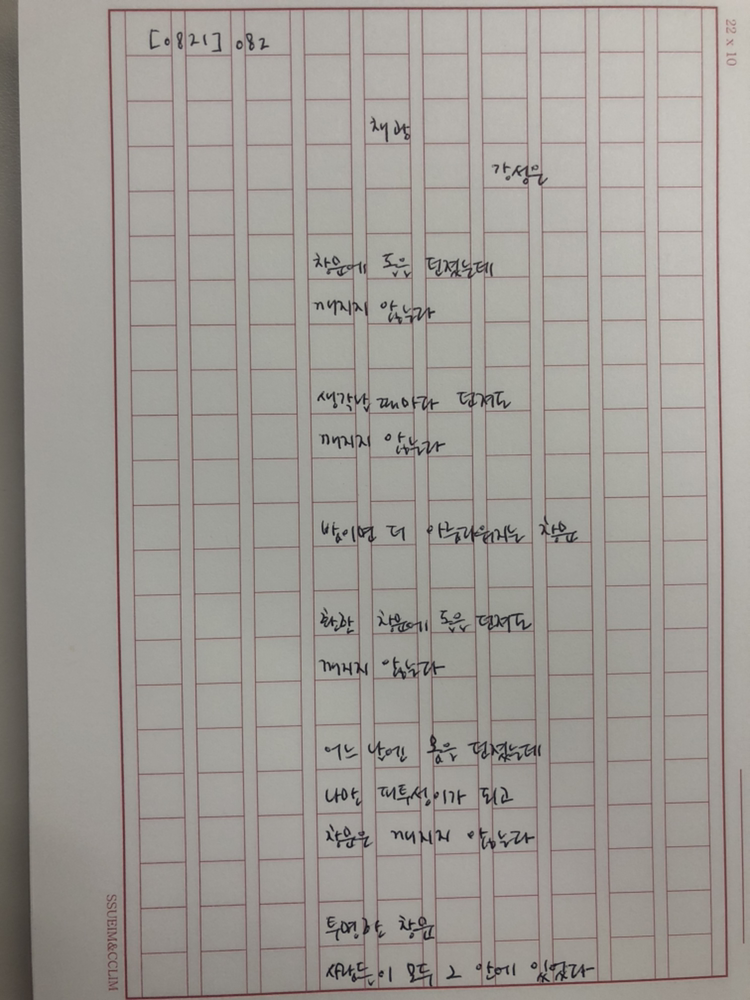 [0821] 082
22 x 10
채광
강성은
창문에 돌을 던졌는데
깨지지 않는다
생각날 때마다 던져도
깨지지 않는다
밤이면 더 아름다워지는 창문
환한 창문에 돌을 던져도
깨지지 않는다
어느 날엔 몸을 던졌는데
나만 피투성이가 되고
창문은 깨지지 않는다
투명한 창문
사람들이 모두 그 안에 있었다
SSUEIM&CCLIM